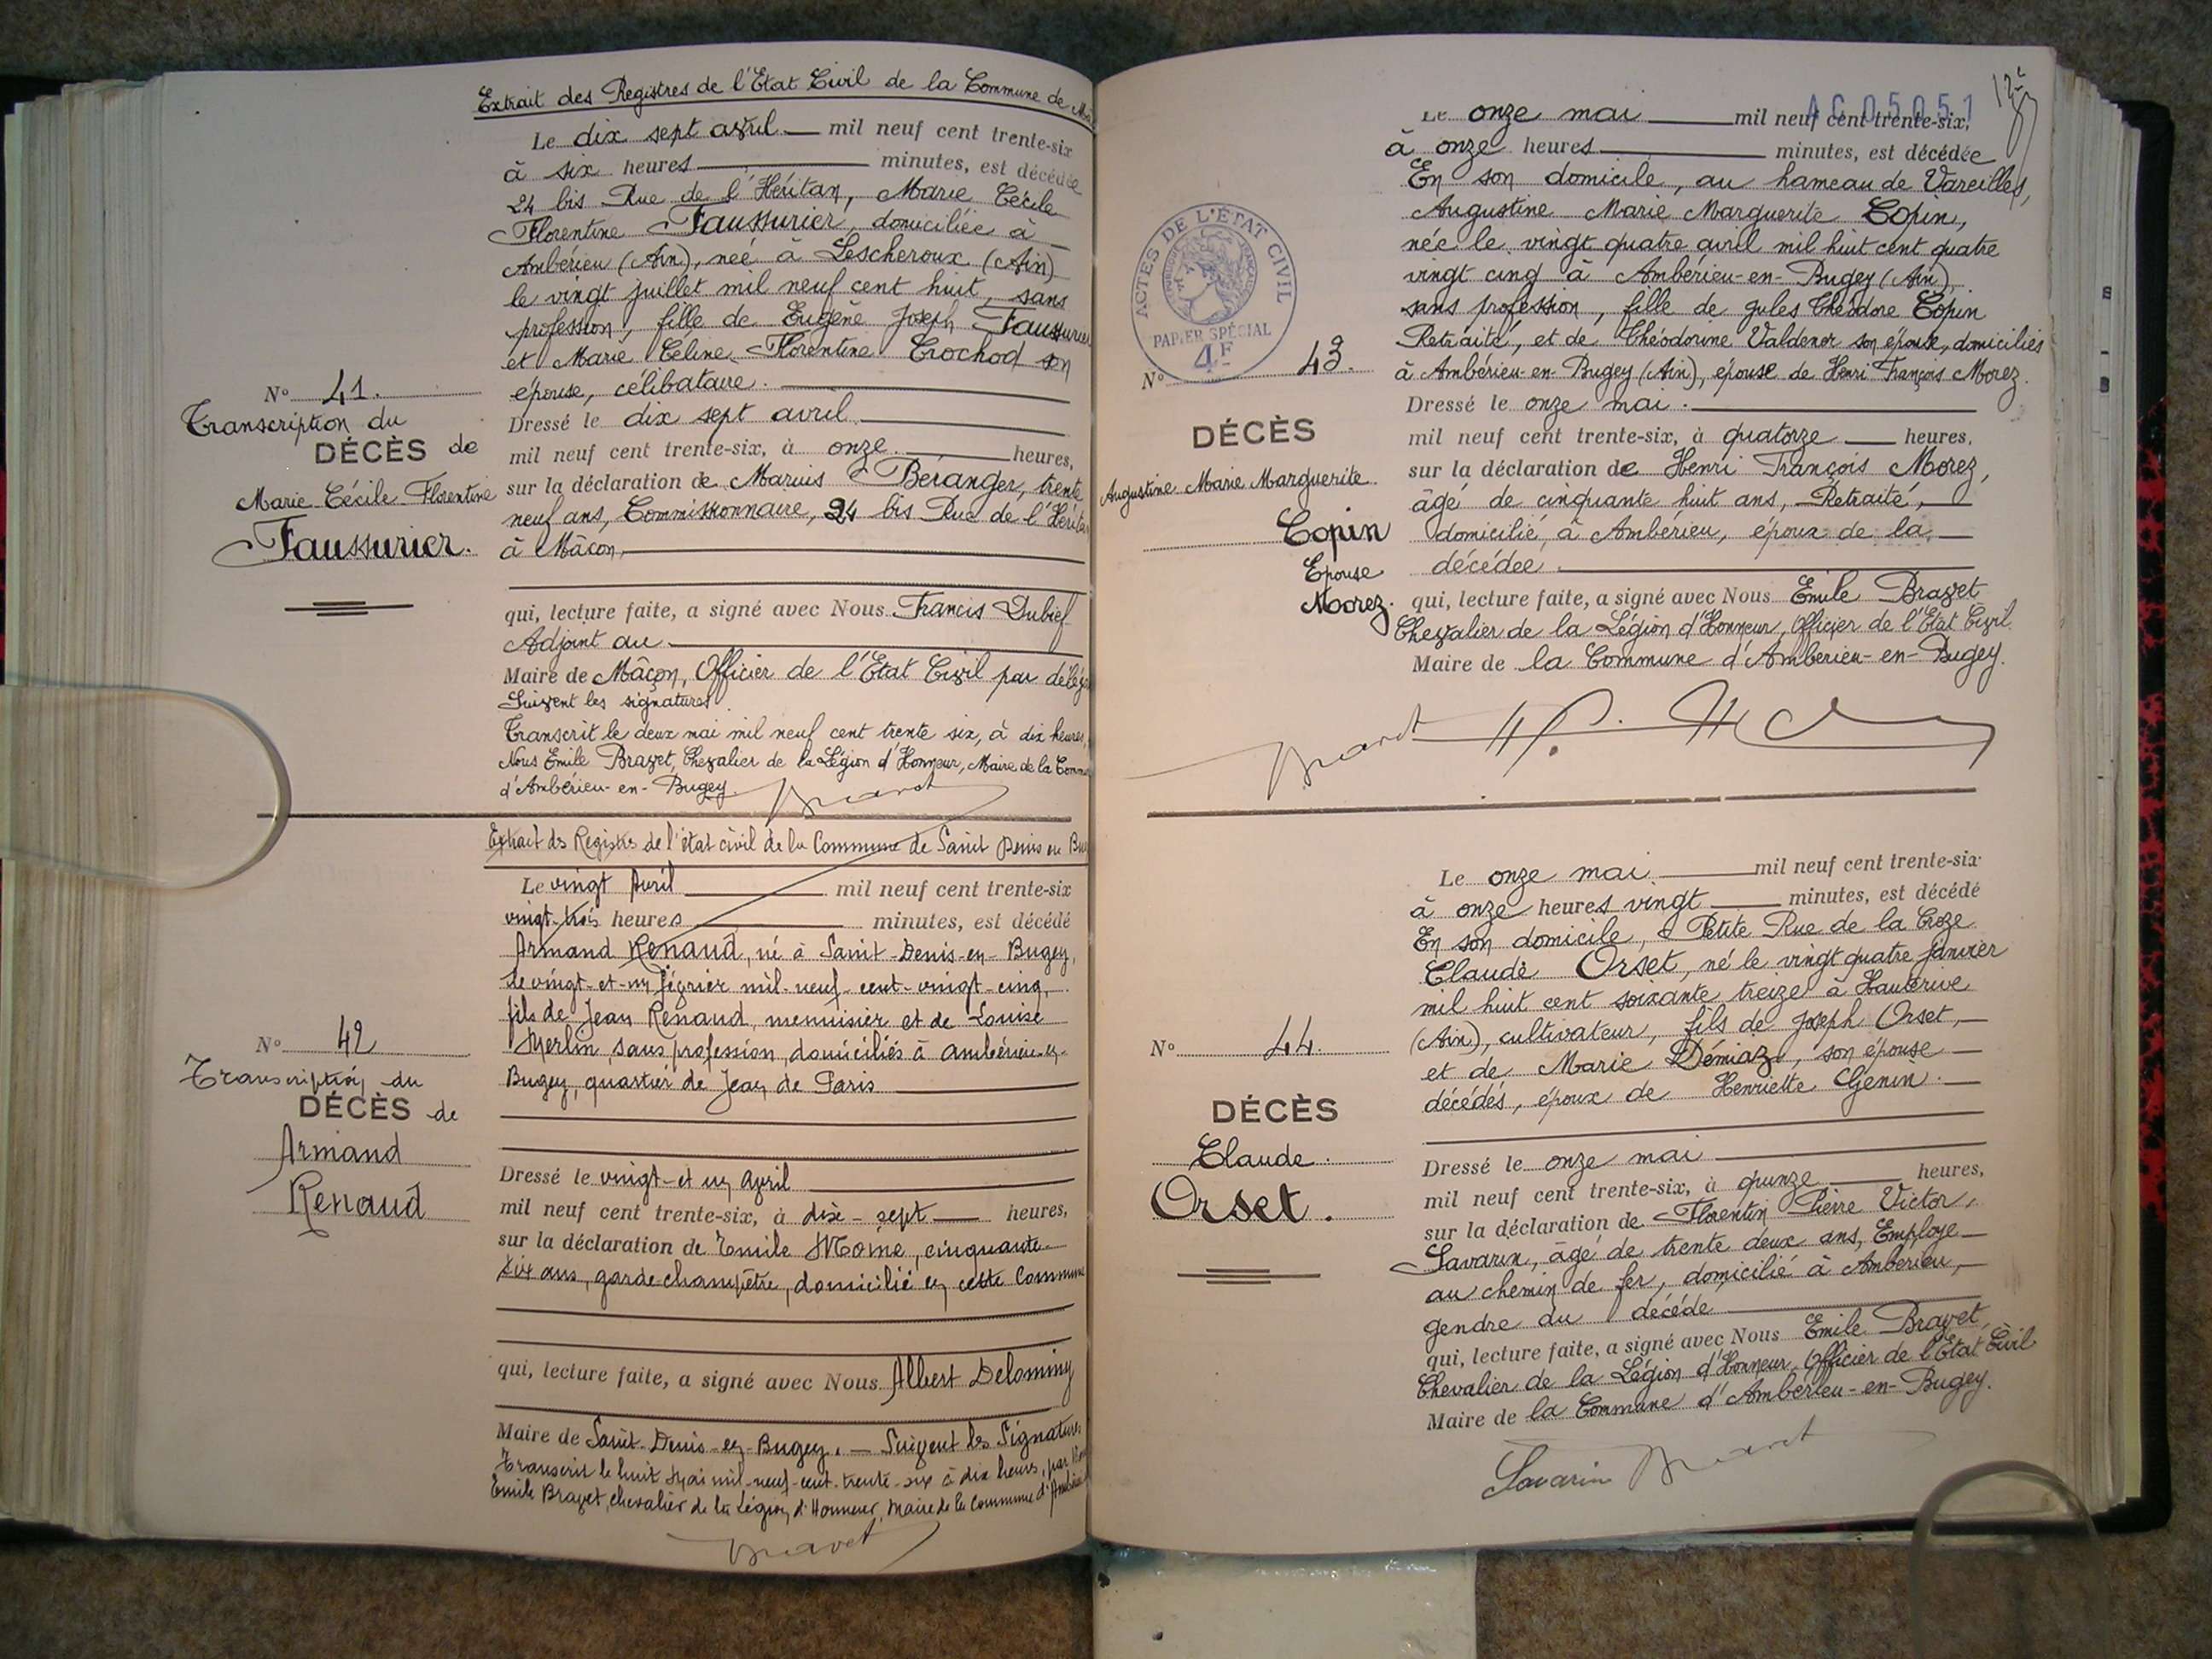 Extrait des Registres de l'Etat Civil de la Commune de
Le dix sept avril mil neuf cent trente-six
à six heures minutes, est décédée
24 bis Rue de l'Héritan, Marie Cécile
Florentine Faussurier, domiciliée à
Ambérieu (Ain), née à Lescheroux (Ain)
le vingt juillet mil neuf cent huit, sans
profession, fille de Eugène Joseph Faussurier
et Marie Céline Florentine Crochod son
épouse, célibataire.
Dressé le dix sept avril
mil neuf cent trente-six, à onze heures,
sur la déclaration de Marius Béranger, trente
neuf ans, Commissionnaire, 24 bis Rue de l'Héritan
à Mâcon,
qui, lecture faite, a signé avec Nous Francis Dubief
Adjoint au
Maire de Mâcon, Officier de l'Etat Civil par
Suivent les signatures.
Transcrit le deux mai mil neuf cent trente six, à dix heures,
Nous Emile Bravet, Chevalier de la Légion d'Honneur, Maire de la
d'Ambérieu-en-Bugey.
Bravet
N° 41.
Transcription du
DÉCÈS de
Marie Cécile Florentine
Faussurier.
Extrait des Registres de l'état civil de la Commune de Saint Denis en
Le vingt Avril mil neuf cent trente-six
vingt-trois heures minutes, est décédé
Armand Renaud, né à Saint-Denis-en-Bugey,
le vingt-et-un février mil-neuf-cent-vingt-cinq,
fils de Jean Renaud, menuisier et de Louise
Merlin, sans profession, domiciliés à Ambérieu-en-
Bugey, quartier de Jean de Paris
Dressé le vingt-et-un Avril
mil neuf cent trente-six, à dix-sept heures,
sur la déclaration de Emile Moine, cinquante-
six ans, garde-champêtre, domicilié en cette Commune
qui, lecture faite, a signé avec Nous Albert Delominy
Maire de Saint-Denis-en-Bugey. — Suivent les Signatures
Transcrit le huit Mai mil-neuf-cent-trente-six à dix heures, par
Emile Bravet, chevalier de la Légion d'Honneur, Maire de la Commune
Bravet
N° 42
Transcription du
DÉCÈS de
Armand
Renaud
AC 05051
Le onze mai mil neuf cent trente-six,
à onze heures minutes, est décédée
En son domicile, au hameau de Vareilles,
Augustine Marie Marguerite Copin,
née le vingt quatre avril mil huit cent quatre
vingt cinq à Ambérieu-en-Bugey (Ain),
sans profession, fille de Jules Théodore Copin
Retraité, et de Théodorine Valdener son épouse, domiciliés
à Ambérieu-en-Bugey (Ain), épouse de Henri François Morez.
Dressé le onze mai.
mil neuf cent trente-six, à quatorze heures,
sur la déclaration de Henri François Morez,
âgé de cinquante huit ans, Retraité,
domicilié à Ambérieu, époux de la
décédée
qui, lecture faite, a signé avec Nous Emile Bravet
Chevalier de la Légion d'Honneur, Officier de l'Etat Civil
Maire de la Commune d'Ambérieu-en-Bugey.
Bravet
ACTES DE L'ÉTAT CIVIL
PAPIER SPÉCIAL
4F
N° 43.
DÉCÈS
Augustine Marie Marguerite
Copin
Epouse
Morez.
Le onze mai mil neuf cent trente-six
à onze heures vingt minutes, est décédé
En son domicile, Petite Rue de la Croze
Claude Orset, né le vingt quatre janvier
mil huit cent soixante treize à Hauterive
(Ain), cultivateur, fils de Joseph Orset,
et de Marie Démiaz, son épouse
décédés, époux de Henriette Genin.
Dressé le onze mai
mil neuf cent trente-six, à quinze heures,
sur la déclaration de Florentin Pierre Victor
Savarin, âgé de trente deux ans, Employe
au chemin de fer, domicilié à Ambérieu,
gendre du décédé
qui, lecture faite, a signé avec Nous Emile Bravet,
Chevalier de la Légion d'Honneur, Officier de l'Etat Civil
Maire de la Commune d'Ambérieu-en-Bugey.
Savarin Bravet
N° 44.
DÉCÈS
Claude
Orset.